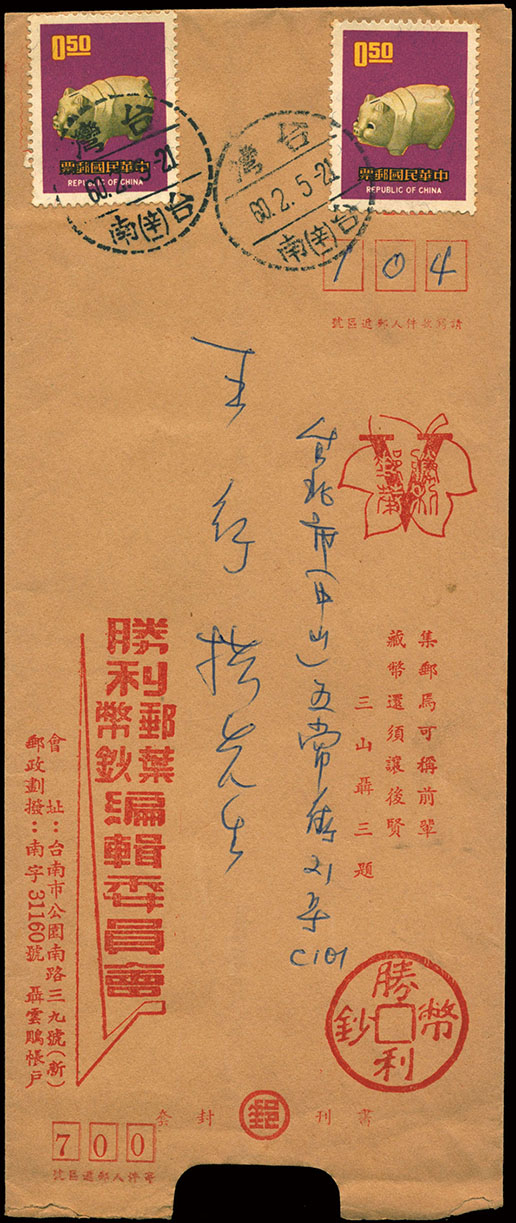 0.50
中華民國郵票
REPUBLIC OF CHINA
0.50
中華民國郵票
REPUBLIC OF CHINA
台灣
60.2.5-21
台南(辛)
台灣
60.2.5-21
台南(辛)
104
請寫收件人郵遞區號
集郵焉可稱前輩
藏幣還須讓後賢
三山聶三題
台北市(中山)五常街
C101
王
先生
勝利
郵葉
幣鈔
編輯委員會
會址：台南市公園南路三九號(新)
郵政劃撥：南字31160號 聶雲鵬帳戶
勝利幣鈔
書刊 郵 封套
700
寄件人郵遞區號